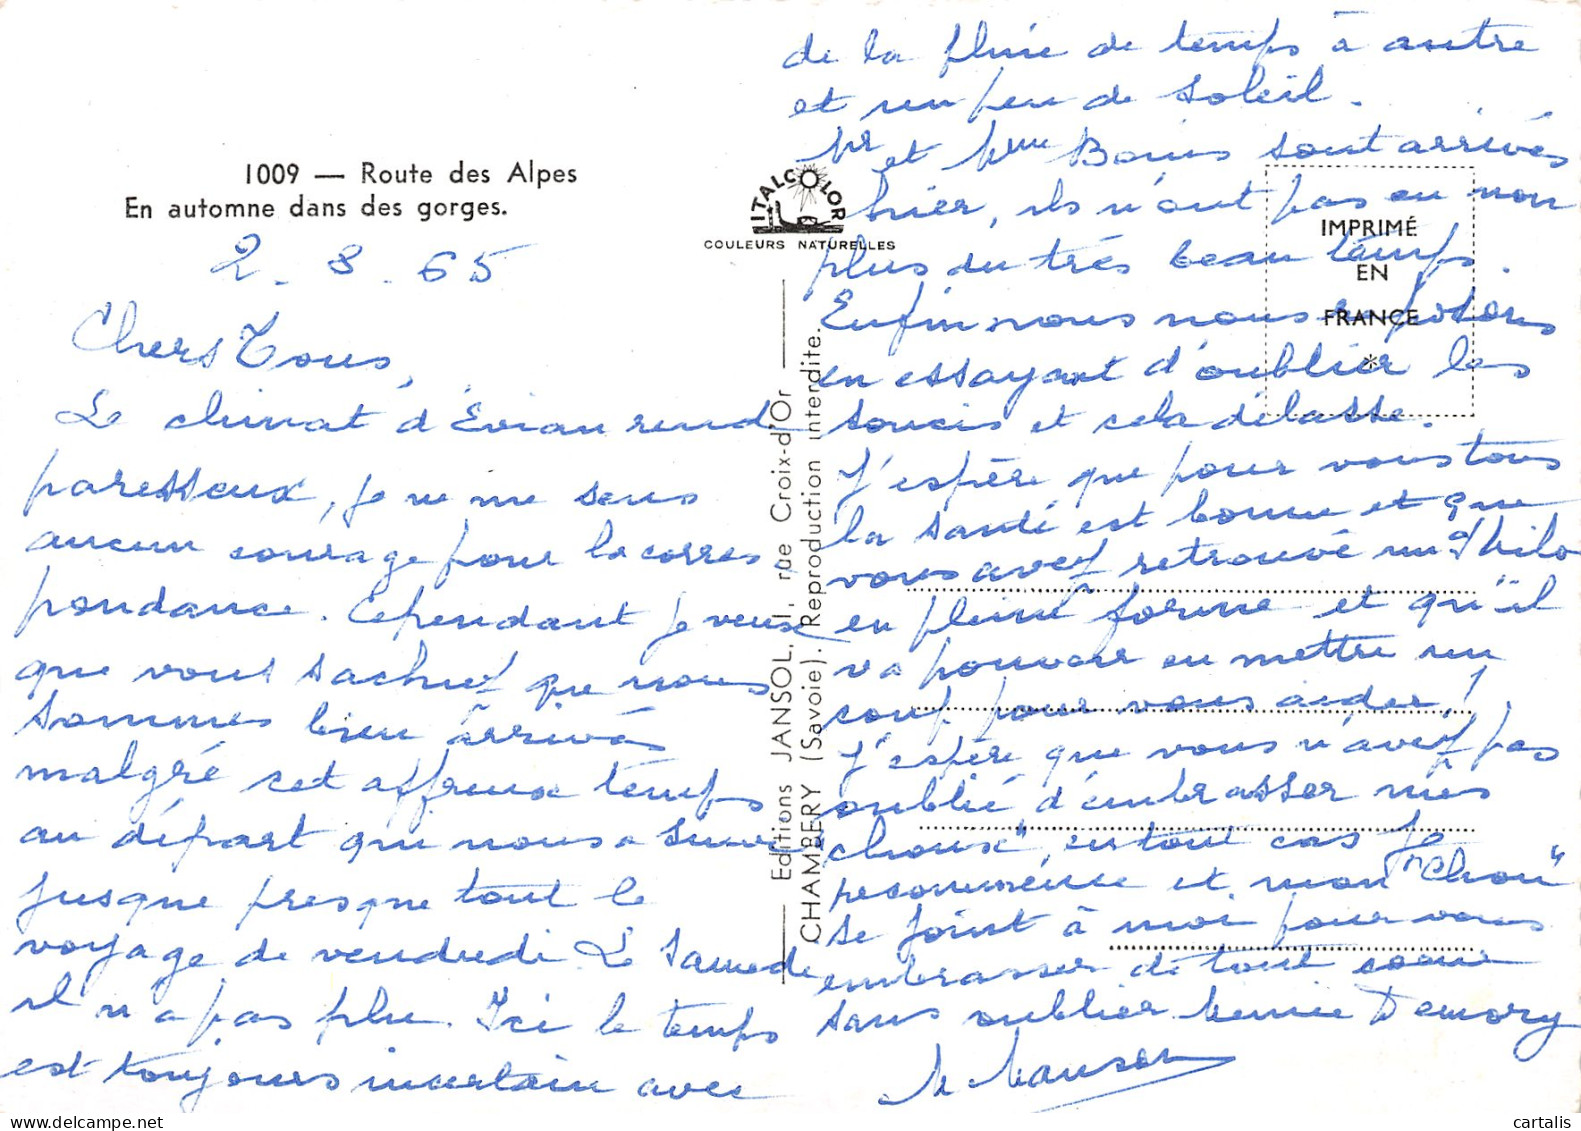 1009 — Route des Alpes
En automne dans des gorges.
2.8.65
Chers Tous,
Le climat d'Évian rend
paresseux, je ne me sens
aucun courage pour la corres-
pondance. Cependant je veux
que vous sachiez que nous
sommes bien arrivés
malgré cet affreux temps
au départ qui nous a suivi
jusque presque tout le
voyage de vendredi. Le Samedi
il n'a pas plu. Ici le temps
est toujours incertain avec
de la pluie de temps à autre
et un peu de soleil.
Mr et Mme sont arrivés
hier, ils n'ont pas eu non
plus du très beau temps.
Enfin nous nous reposons
en essayant d'oublier les
soucis et cela délasse.
J'espère que pour vous tous
la santé est bonne et que
vous avez retrouvé un
en pleine forme et qu'il
va pouvoir en mettre un
coup pour vous aider !
J'espère que vous n'avez pas
oublié d'embrasser mes
choux", en tout cas Je
recommence et mon "Chou"
se joint à moi pour vous
embrasser de tout coeur
sans oublier Demory
ITALCOLOR
COULEURS NATURELLES
IMPRIMÉ
EN
FRANCE
*
Editions JANSOL, 1, rue Croix-d'Or
CHAMBERY (Savoie). Reproduction interdite.
cartalis
delcampe.net